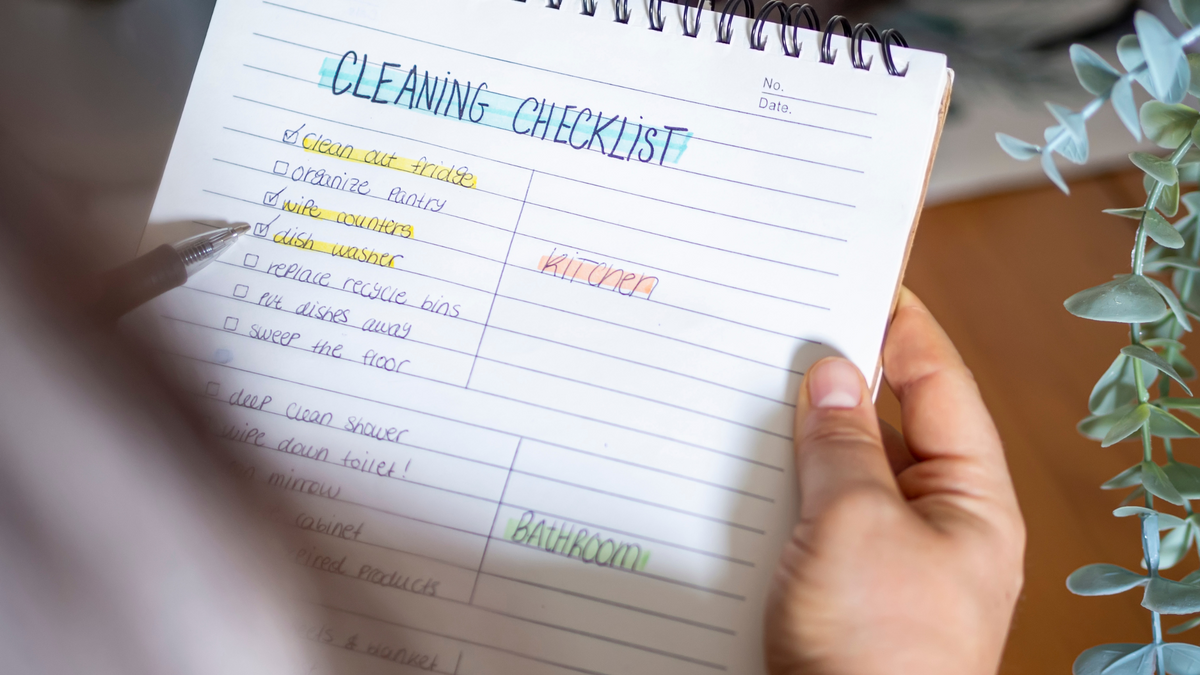 No.
Date.
CLEANING CHECKLIST
clean out fridge
organize pantry
wipe counters
dish washer
replace recycle bins
put dishes away
sweep the floor
kitchen
deep clean shower
wipe down toilet!
mirrow
cabinet
products
BATHROOM
& blanket